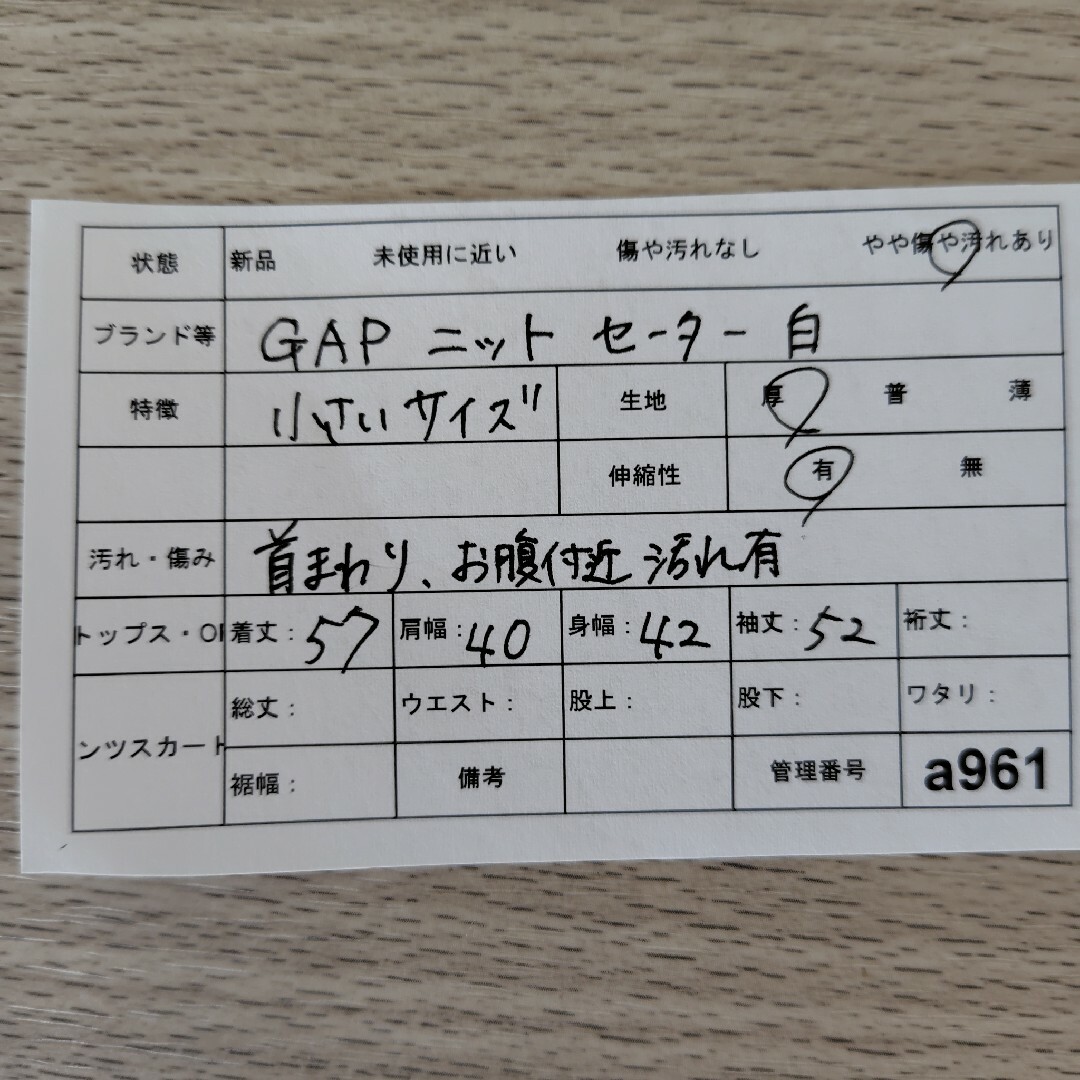 状態 新品 未使用に近い 傷や汚れなし やや傷や汚れあり
ブランド等 GAP ニット セーター 白
特徴 小さいサイズ 生地 厚 普 薄
伸縮性 有 無
汚れ・傷み 首まわり、お腹付近 汚れ有
トップス・O 着丈：57 肩幅：40 身幅：42 袖丈：52 裄丈：
ンツスカート 総丈： ウエスト： 股上： 股下： ワタリ：
裾幅： 備考 管理番号 a961